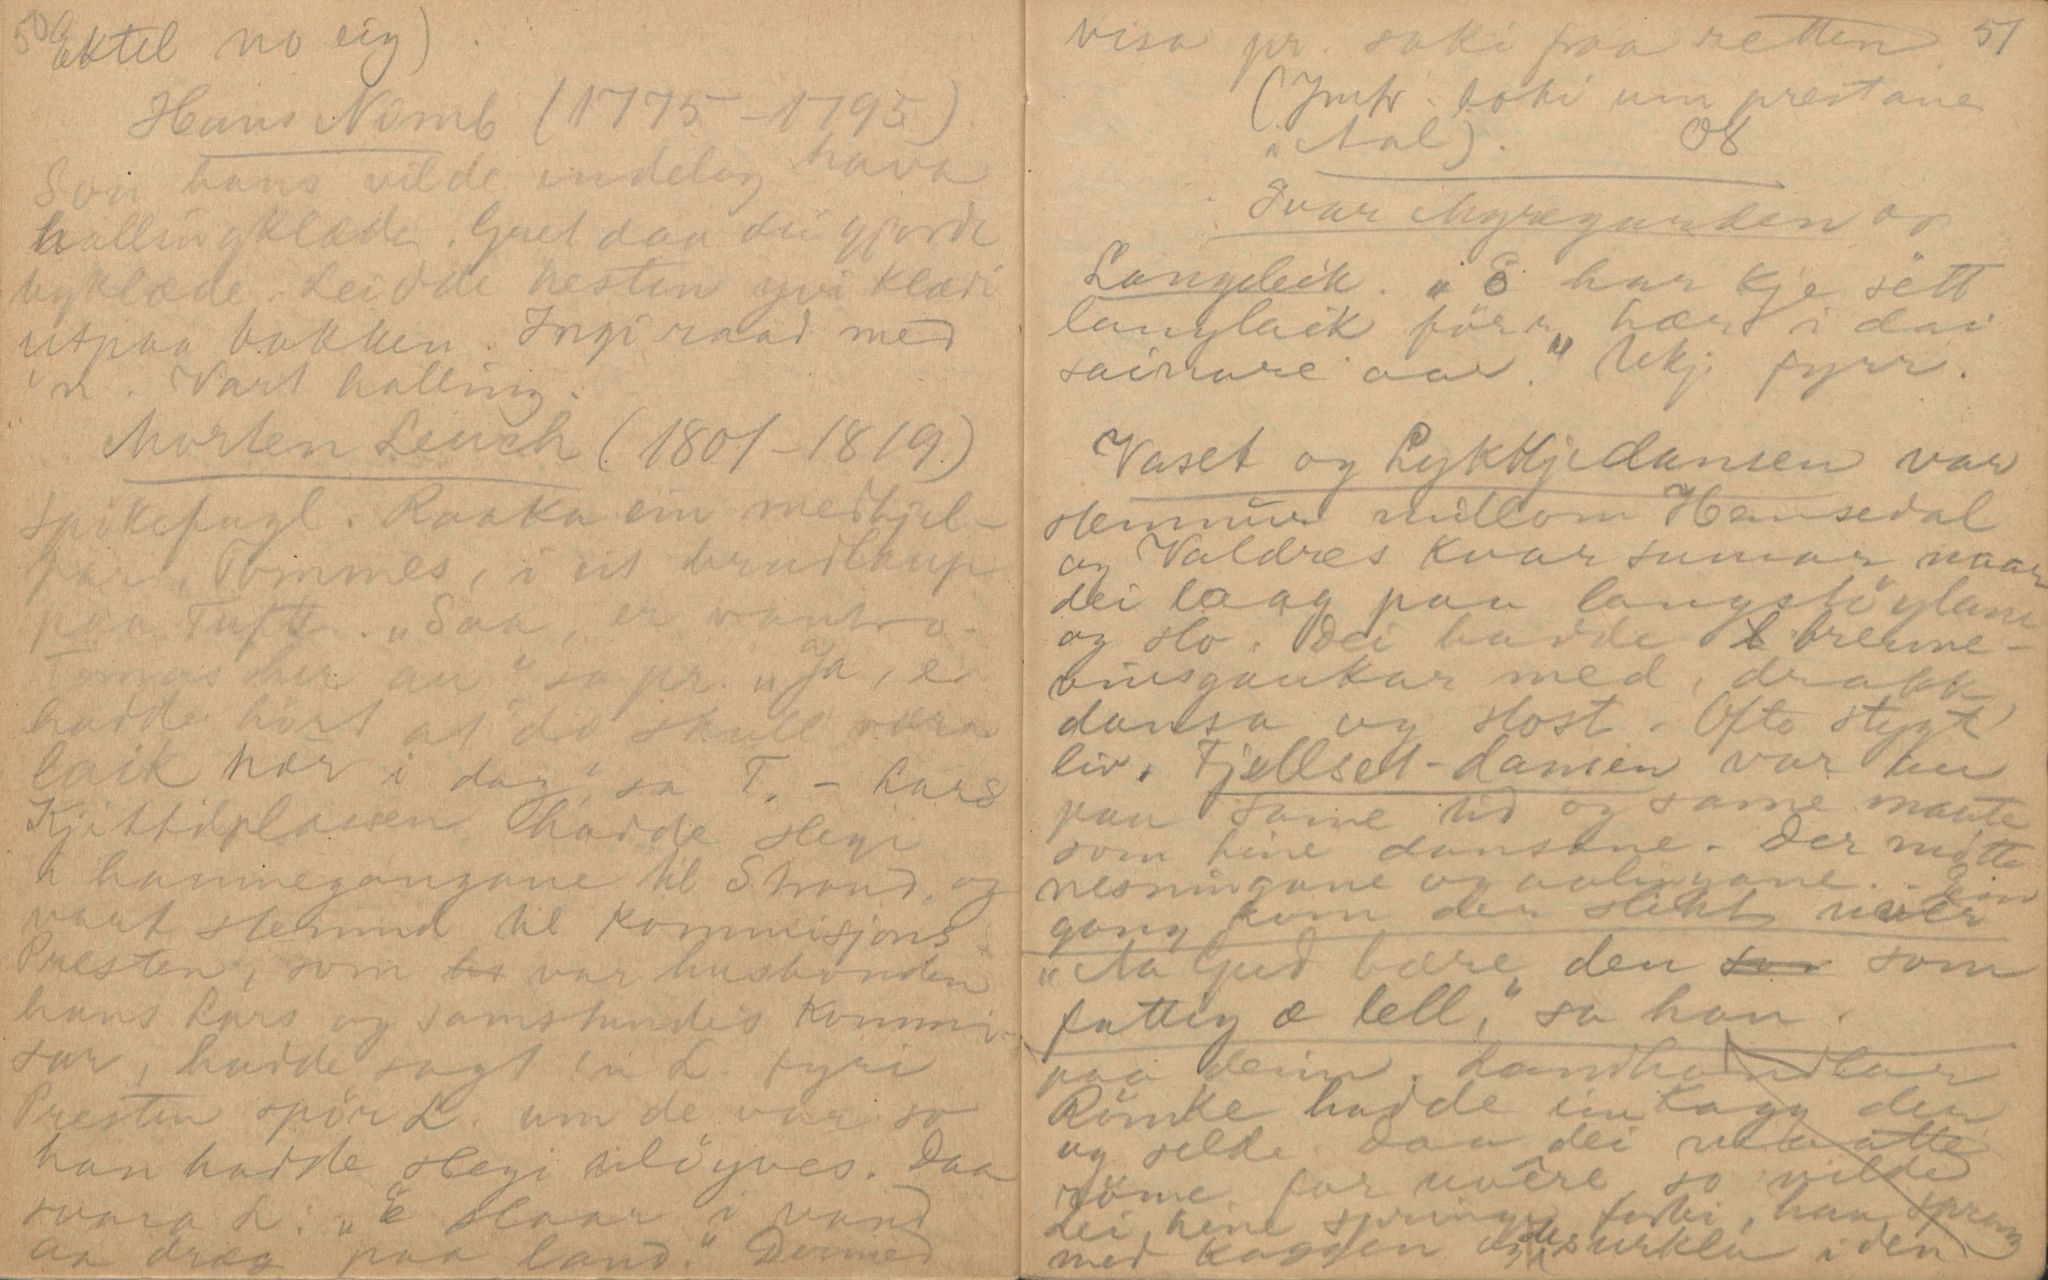 50
Ektel no eig).
Hans Nimb (1775-1795)
Son hans vilde endeleg hava
hallingklæde. Gret daa dei gjorde
byklæde. Leidde hesten yvi klædi
utpaa bakken. Ingi raad med
'n. Vart halling.
Morten Leuch (1801-1819)
Spikefugl. Raaka ein medhjel-
par, Tommes, i eit brudlaup
paa Tufte. „Saa, er
Tomas her au" sa pr. „Ja, e
hadde hört at dö skull væra
laik hær i dag" sa T. - Lars
Kjittilplassen hadde slegi
i hamnegangane til Strand, og
vart stemnd til Kommisjons.
Presten, som var husbonden
hans Lars og samstundes Kommi-
sær, hadde sagt in L. fyri
Presten spör L. um de var so
han hadde slegi ulöyves. Daa
svara L: „E slaar i vand
aa dræg paa land." Dermed
51
visa pr. saki fraa retten
(Jmfr. boki um prestane
i Aal). O8
Ivar Myregarden og
Langleik. „E har kje sett
langlaik förr, hær i dai
sainare aar." Ikkj fyrr.
Vaset og Lykkjedansen var
stemnur millom Hemsedal
og Valdres kvar sumar naar
dei laag paa langstöylane
og slo. Dei hadde brenne-
vinsgaukar med, drakk
dansa og slost. Ofto stygt
liv. Fjellset-dansen var au
paa same tid og same maate
som hine dansane. Der mötte
nesningane og aalingane. - Ein
gong kom der slikt uver
„Aa Gud bære den som
fattig æ lell," sa han.
paa deim. Landhandlar
Römke hadde ein kagg der
og selde. Daa dei maatte
röme for uvêre, so vilde
dei hine springe forbi, han sprang
med kaggen og den i den